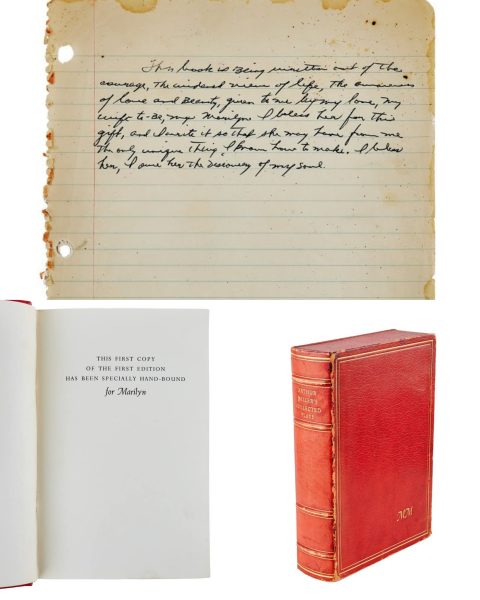 This book is being written out of the
courage, the widened view of life, the awareness
of love and beauty, given to me by my love, my
wife-to-be, my Marilyn. I bless her for this
gift, and I write it so that she may have from me
the only unique thing I know how to make. I bless
her, I owe her the discovery of my soul.
THIS FIRST COPY
OF THE FIRST EDITION
HAS BEEN SPECIALLY HAND-BOUND
for Marilyn
ARTHUR
MILLER'S
COLLECTED
PLAYS
MM